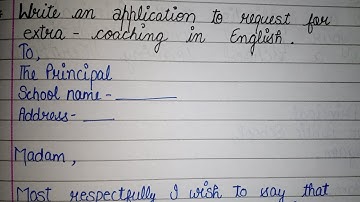 Write an application to request for
extra - coaching in English.
To,
The Principal
School name - ________
Address - ____
Madam,
Most respectfully I wish to say that